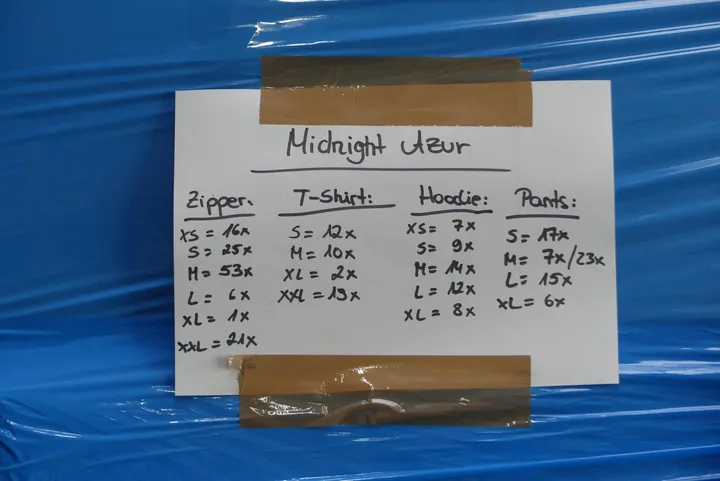 Midnight Azur
Zipper:
XS = 16x
S = 25x
M = 53x
L = 6x
XL = 1x
XXL = 21x
T-Shirt:
S = 12x
M = 10x
XL = 2x
XXL = 19x
Hoodie:
XS = 7x
S = 9x
M = 14x
L = 12x
XL = 8x
Pants:
S = 17x
M = 7x/23x
L = 15x
XL = 6x